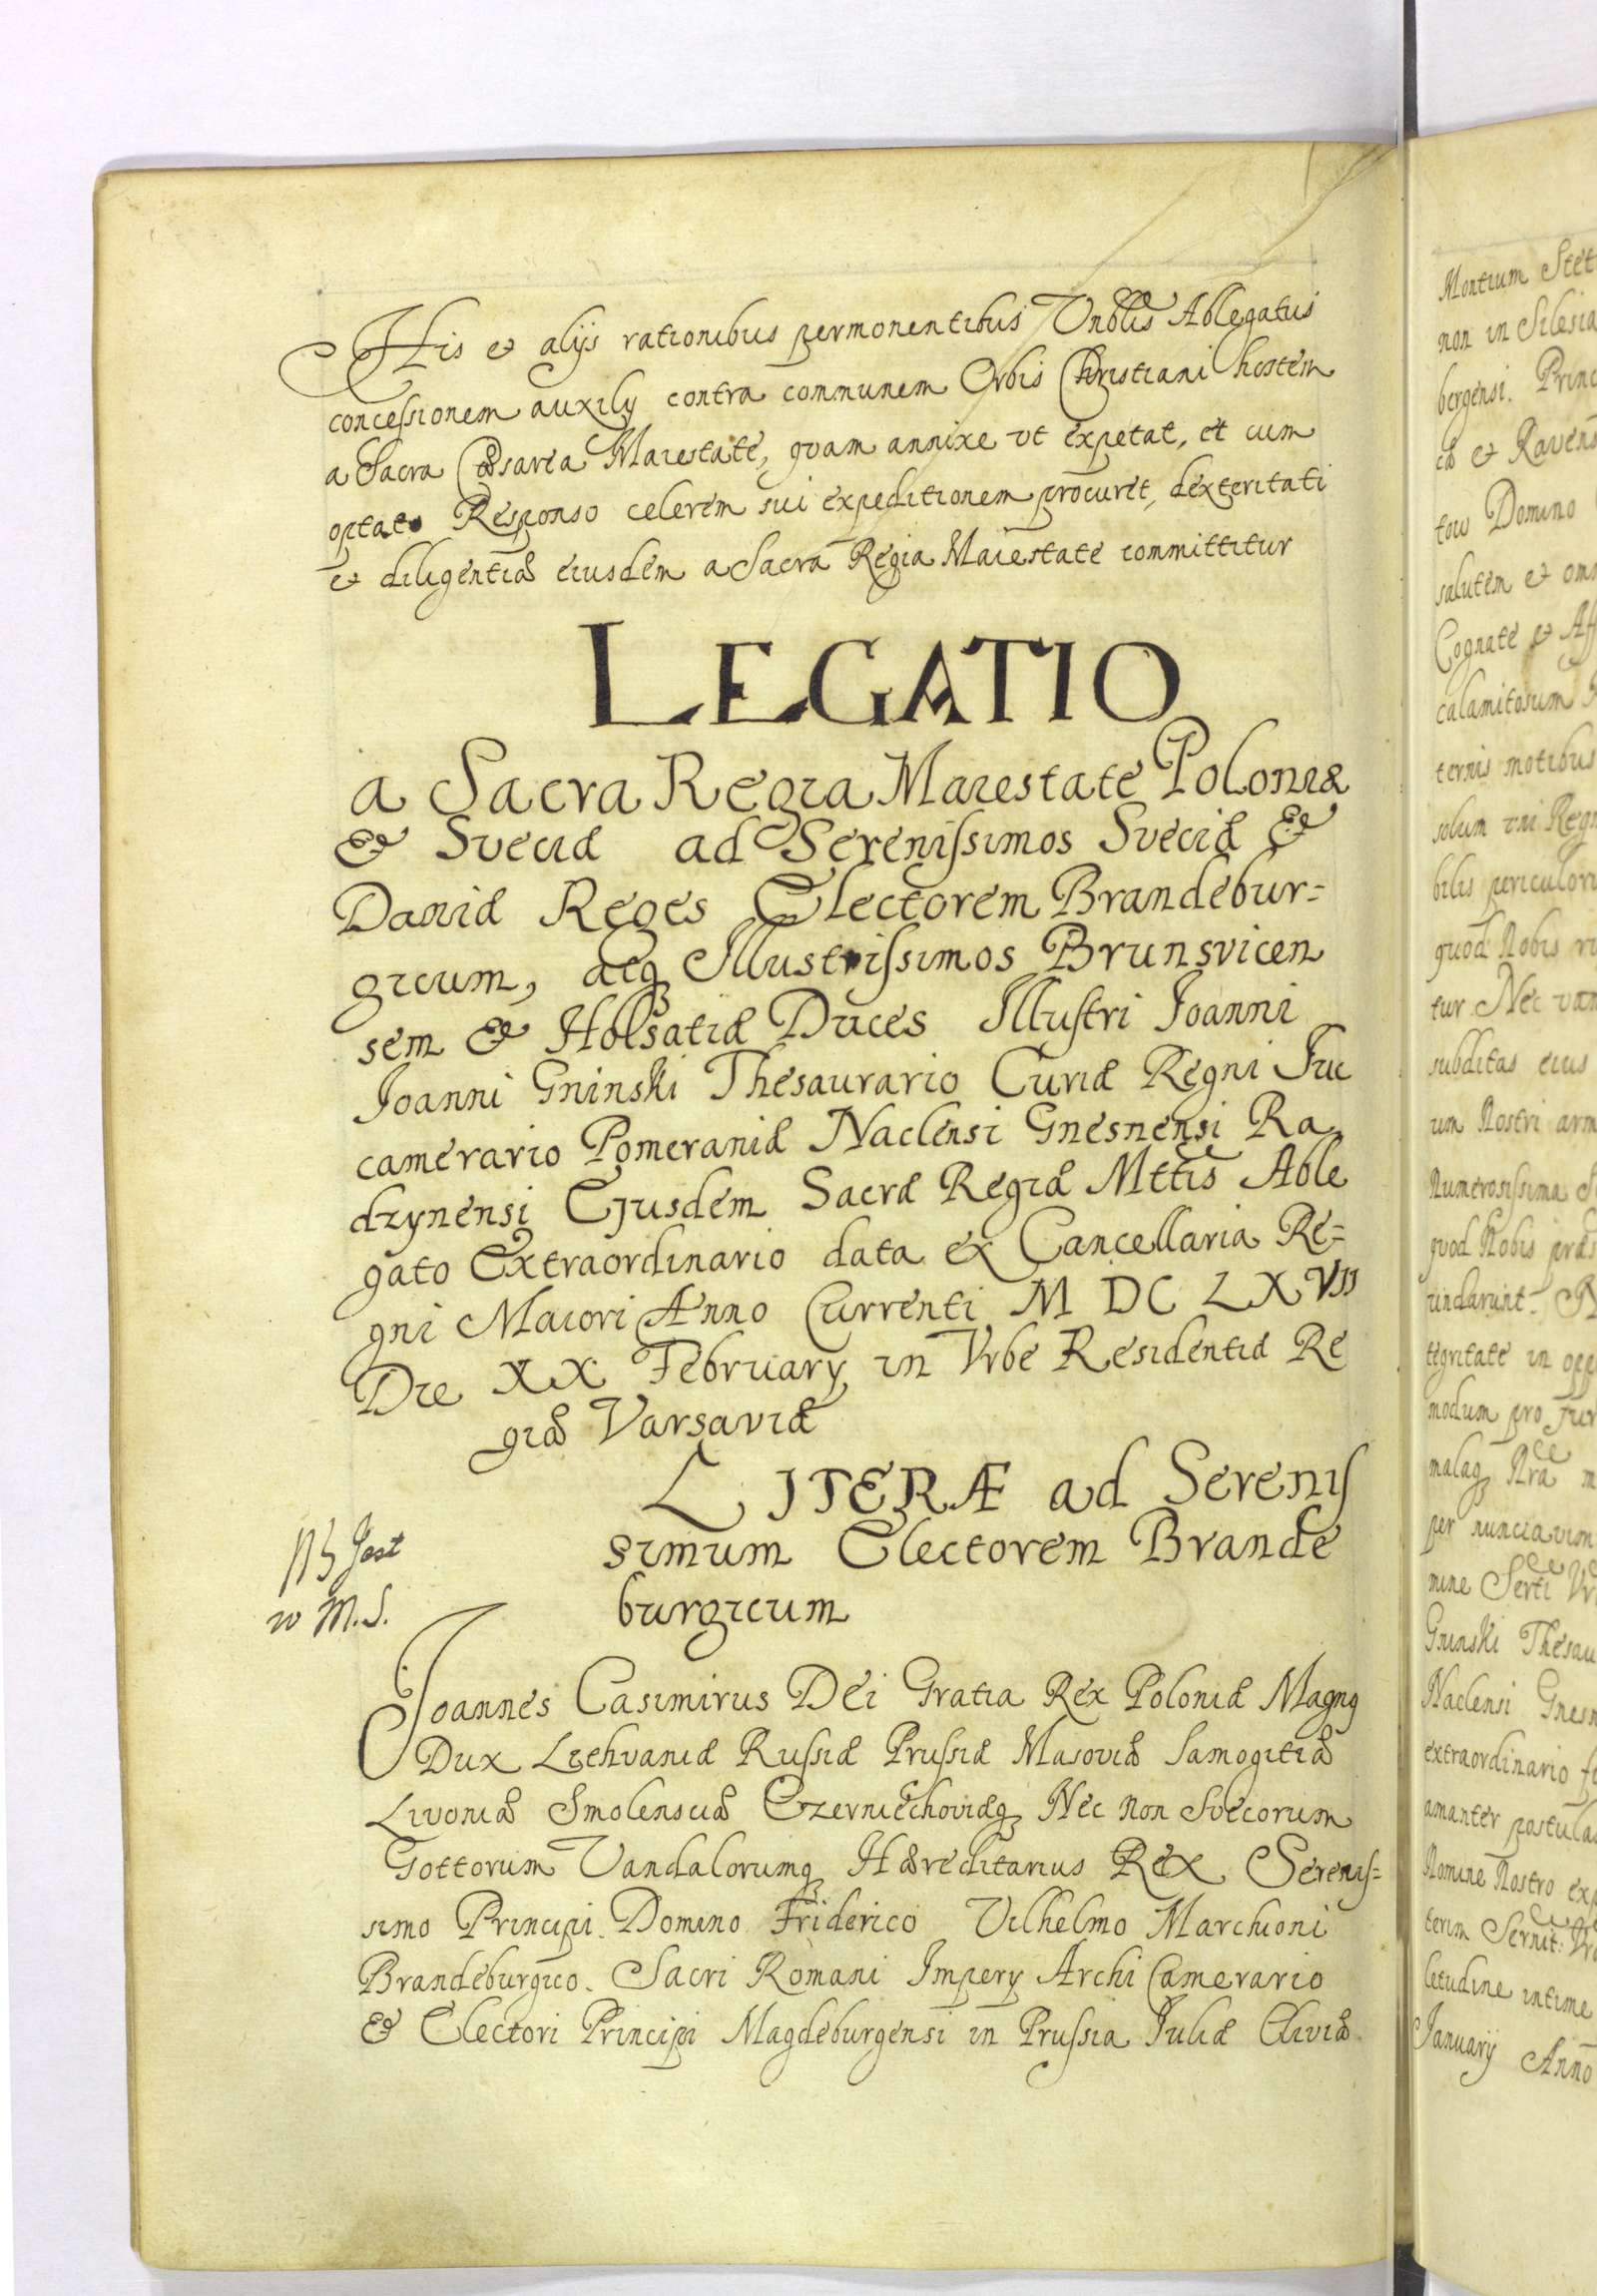 His et alijs rationibus permonentibus Vnblis Ablegatus
concessionem auxily contra communem Orbis Christiani hostem
a Sacra Cæsarea Maiestate, quam annixe vt expetat, et cum
optato Responso celerem sui expeditionem procuret, dexteritati
et diligentiæ eiusdem a Sacra Regia Maiestate committitur
LEGATIO
a Sacra Regia Maiestate Poloniæ
& Sveciæ ad Serenissimos Sveciæ &
Daniæ Reges Electorem Brandebur=
gicum, atq Illustrissimos Brunsvicen
sem & Holsatiæ Duces Illustri Joanni
Joanni Gninski Thesaurario Curiæ Regni Suc
camerario Pomeraniæ Naclensi Gnesnensi Ra
dzynensi Ejusdem Sacræ Regiæ Mttis Able
gato Extraordinario data ex Cancellaria Re=
gni Maiori Anno Currenti M DC LXVII
Die XX February in Vrbe Residentiæ Re
giæ Varsaviæ
LITERÆ ad Serenis
simum Electorem Brande
burgicum
NB Jest
w M.S.
Joannes Casimirus Dei Gratia Rex Poloniæ Magnq
Dux Liehvaniæ Russiæ Prussiæ Masoviæ Samogitiæ
Livoniæ Smolensciæ Czerniechoviæq Nec non Svecorum
Gottorum Vandalorumq Hæreditarius Rex Serenis=
simo Principi Domino Friderico Vilhelmo Marchioni
Brandeburgico. Sacri Romani Impery Archi Camerario
& Electori Principi Magdeburgensi in Prussia Juliæ Cliviæ
Montium Stet
non in Silesia
bergensi. Princ
cæ et Ravens
tow Domino
salutem et omn
Cognate et Aff
calamitosum
ternis motibus
solum vni Regn
bilis periculor
quod Nobis
tur Nec
subditas eius
um Nostri arm
Numerosissima
quod Nobis
tegritate in
modum pro
malaq Nra
per
mine Serti Vr
Gninski Thesau
Naclensi Gnesn
extraordinario
amanter postula
Nomine Nostro exp
terim Sernit: Vr
letudine intime
Januarij Anno